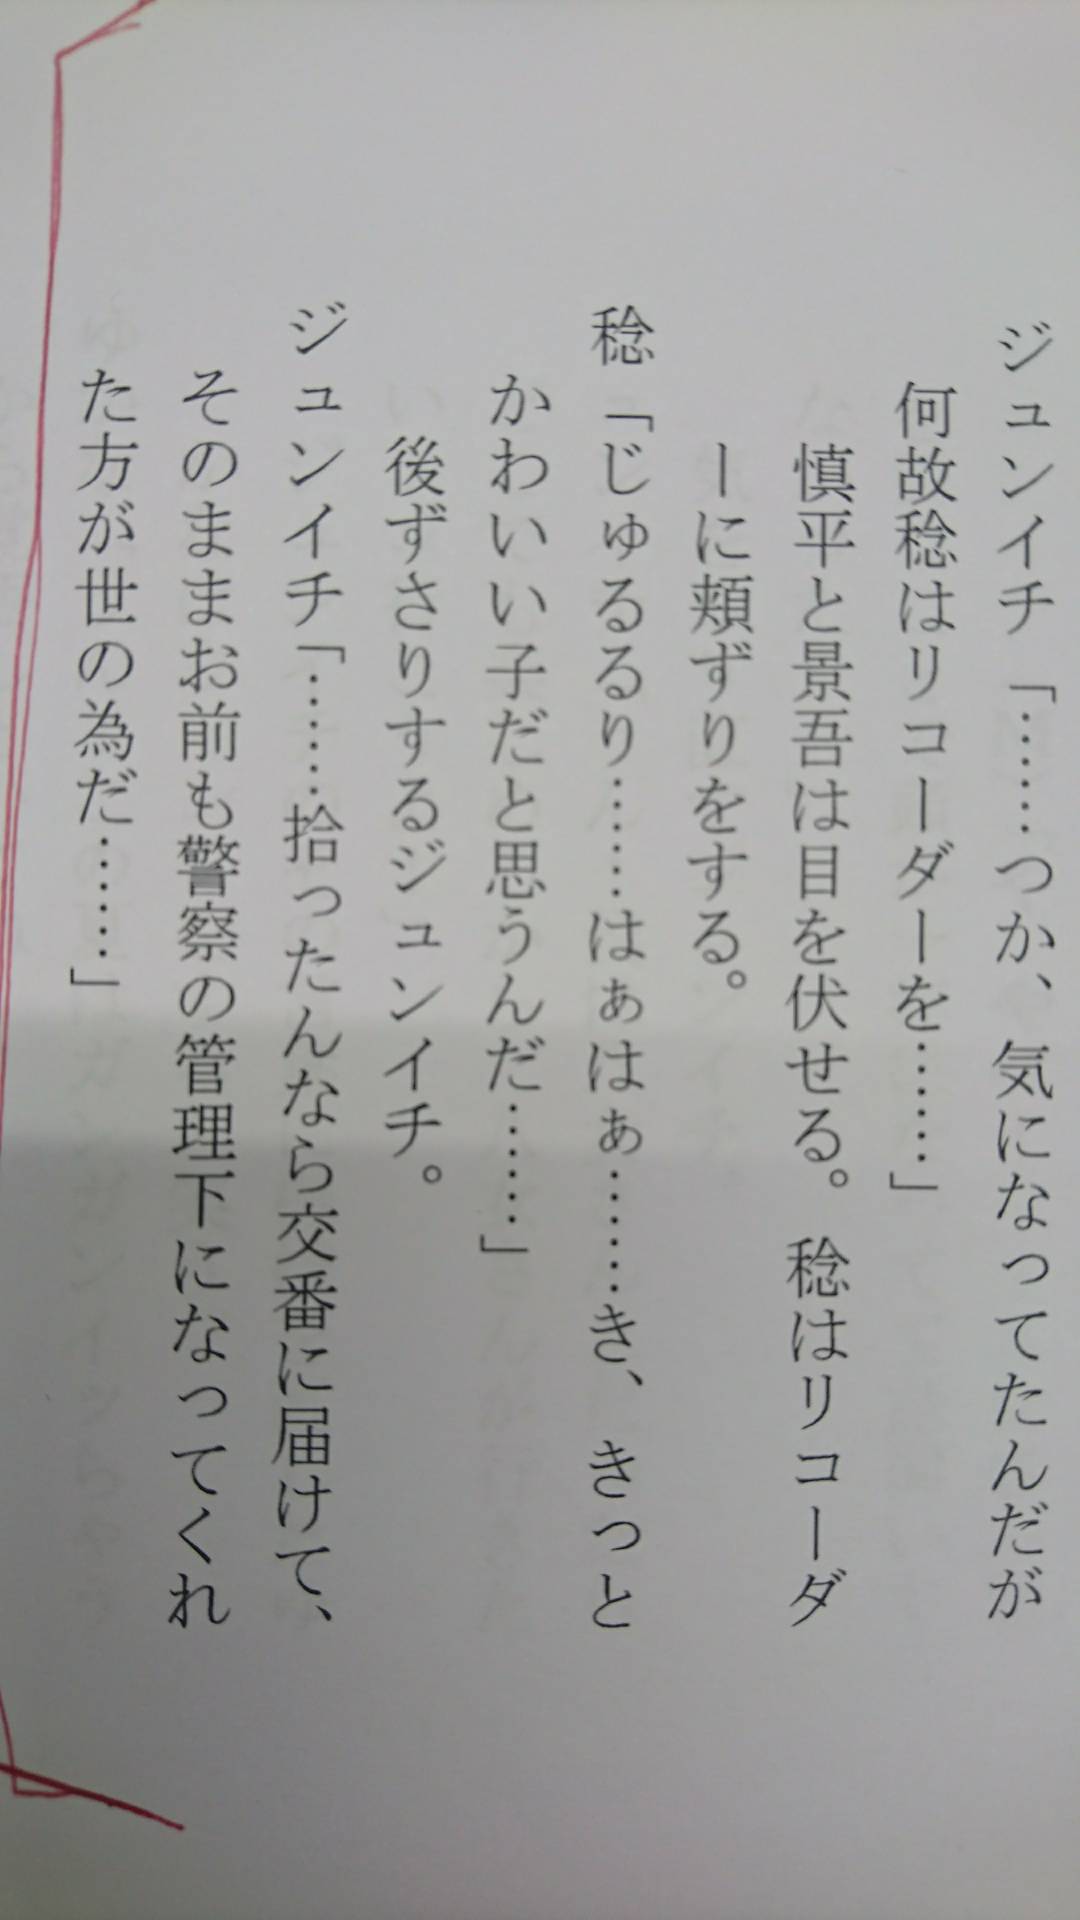 ジュンイチ「……つか、気になってたんだが
何故稔はリコーダーを……」
慎平と景吾は目を伏せる。稔はリコーダ
ーに頬ずりをする。
稔「じゅるるり……はぁはぁ……き、きっと
かわいい子だと思うんだ……」
後ずさりするジュンイチ。
ジュンイチ「……拾ったんなら交番に届けて、
そのままお前も警察の管理下になってくれ
た方が世の為だ……」